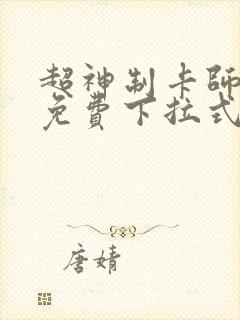 超神制卡師
免費下拉式
唐婧